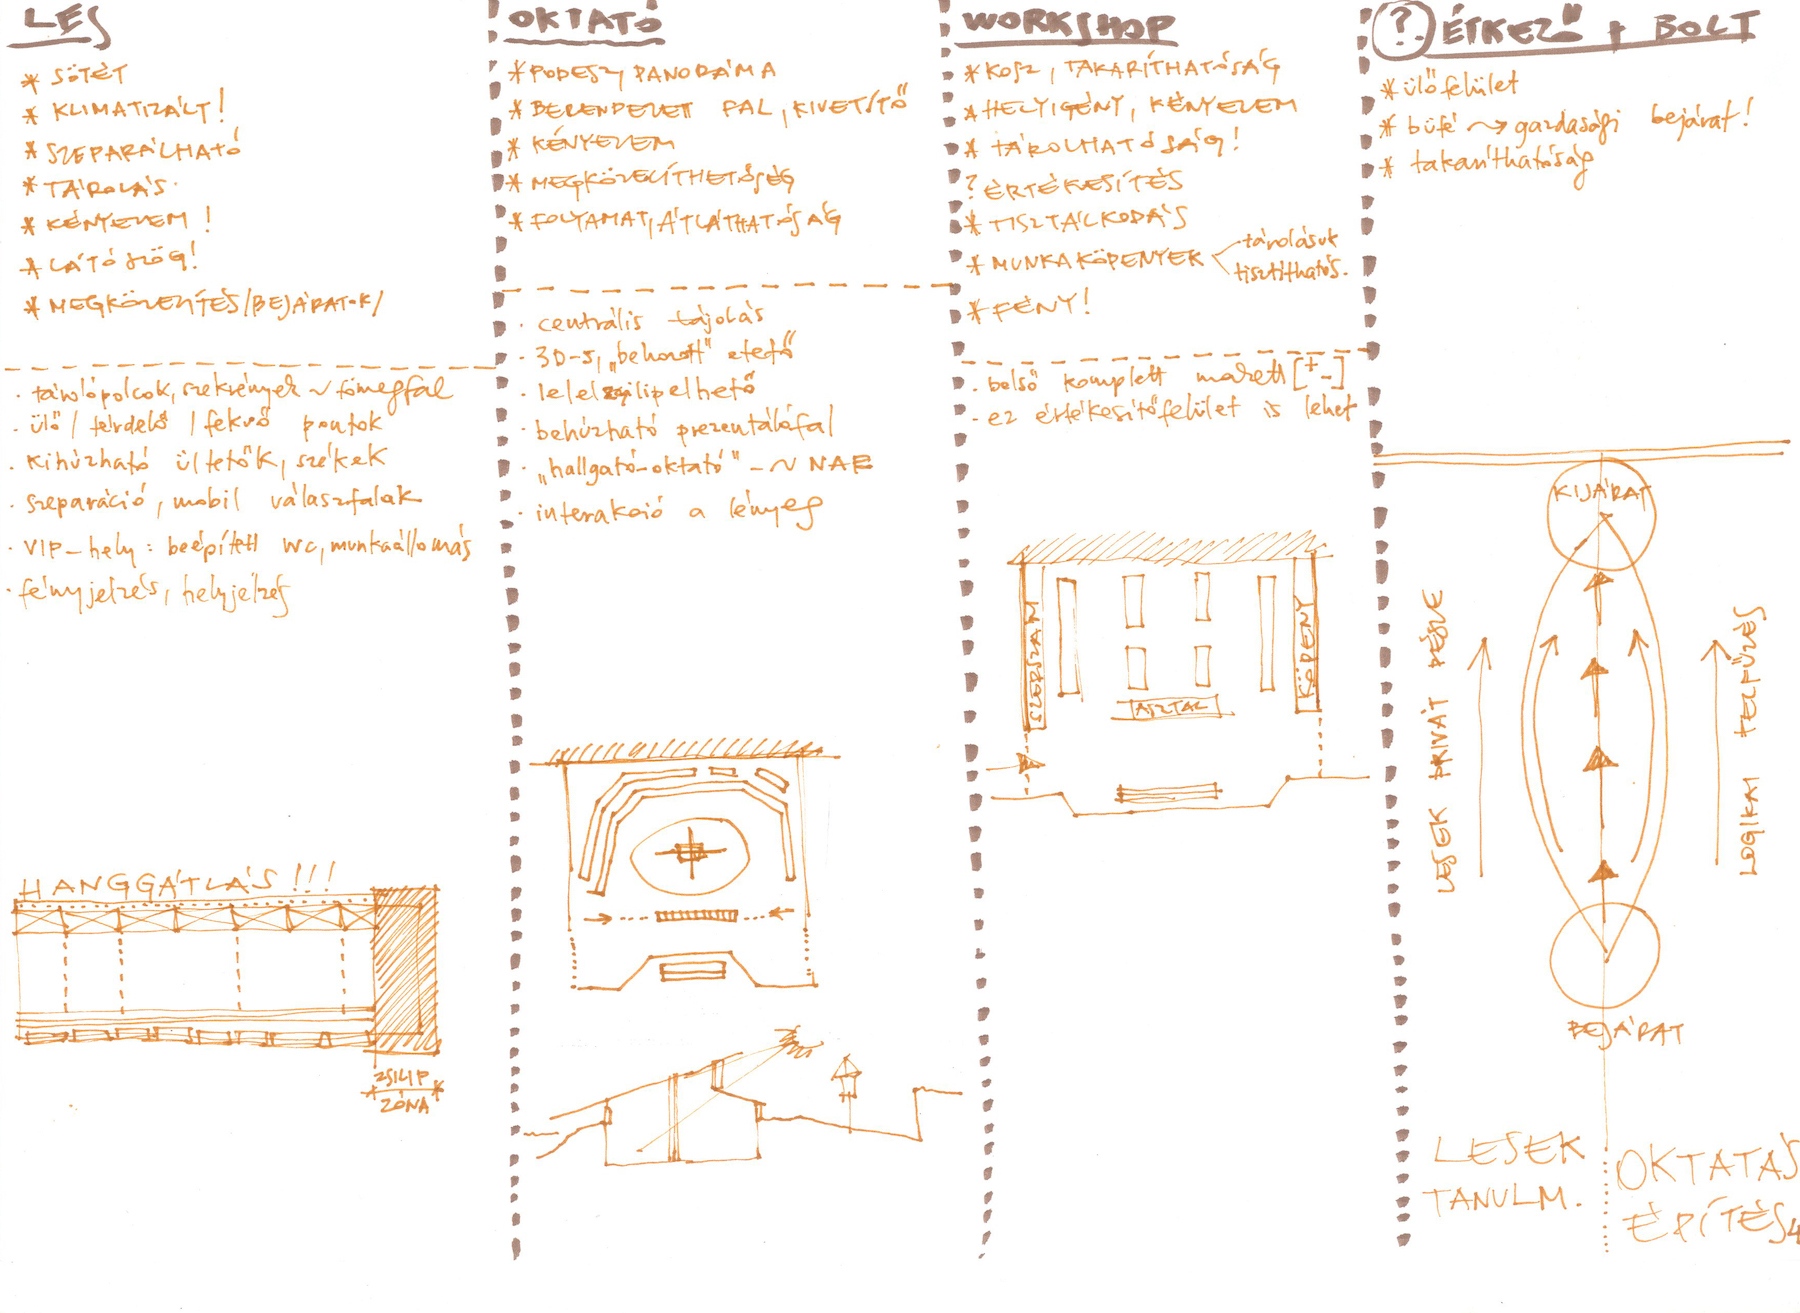 LES
* SÖTÉT
* KLIMATIZÁLT!
* SZEPARÁLHATÓ
* TÁROLÁS
* KÉNYELEM!
* LÁTÓSZÖG!
* MEGKÖZELÍTÉS/BEJÁRAT-K/
· tárolópolcok, szekrények ~ főmegfal
· ülő / térdelő / fekvő pontok
· kihúzható ültetők, székek
· szeparáció, mobil válaszfalak
· VIP-hely: beépített wc, munkaállomás
· fényjelzés, helyjelzés
HANGGÁTLÁS!!!
ZSILIP
ZÓNA
OKTATÓ
* PODESZT, PANORÁMA
* BERENDEZETT FAL, KIVETÍTŐ
* KÉNYELEM
* MEGKÖZELÍTHETŐSÉG
* FOLYAMAT, ÁTLÁTHATÓSÁG
· centrális tájolás
· 3D-s, „behozott" etető
· lezsilipelhető
· behúzható prezentálófal
· „hallgató-oktató"
· interakció a lényeg
WORKSHOP
* KOSZ, TAKARÍTHATÓSÁG
* HELYIGÉNY, KÉNYELEM
* TÁROLHATÓSÁG!
? ÉRTÉKESÍTÉS
* TISZTÁLKODÁS
* MUNKAKÖPENYEK < tárolásuk
tisztíthatós.
* FÉNY!
· belső komplett makett [+-]
· ez értékesítőfelület is lehet
SZERSZÁM
KÖPENY
ASZTAL
? ÉTKEZŐ + BOLT
* ülőfelület
* büfé ~> gazdasági bejárat!
* takaríthatóság
KIJÁRAT
LESEK PRIVÁT RÉSZE
LOGIKAI FELFŰZÉS
BEJÁRAT
LESEK
TANULM.
OKTATÁS
ÉPÍTÉS